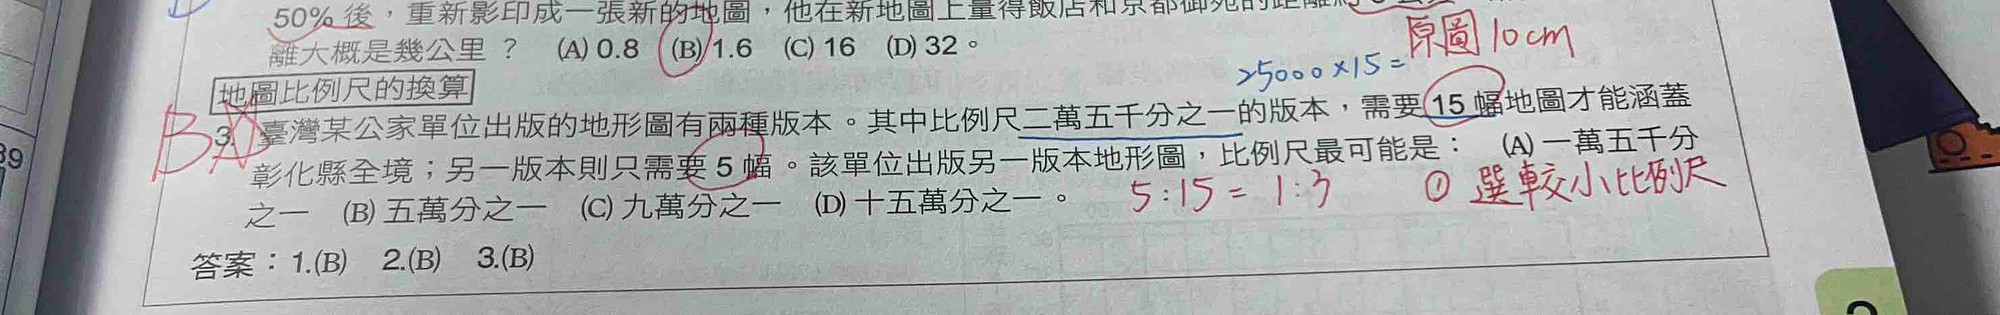 50%後，重新影印成一張新的地圖，他在新地圖上量得飯店和京都御苑的距離
離大概是幾公里？ (A) 0.8 (B) 1.6 (C) 16 (D) 32。
原圖 10cm
地圖比例尺的換算
25000×15=
B
3. 臺灣某公家單位出版的地形圖有兩種版本。其中比例尺二萬五千分之一的版本，需要15幅地圖才能涵蓋
39
彰化縣全境；另一版本則只需要5幅。該單位出版另一版本地形圖，比例尺最可能是： (A) 一萬五千分
之一 (B) 五萬分之一 (C) 九萬分之一 (D) 十五萬分之一。
5:15=1:3 ① 選較小比例尺
答案：1.(B) 2.(B) 3.(B)